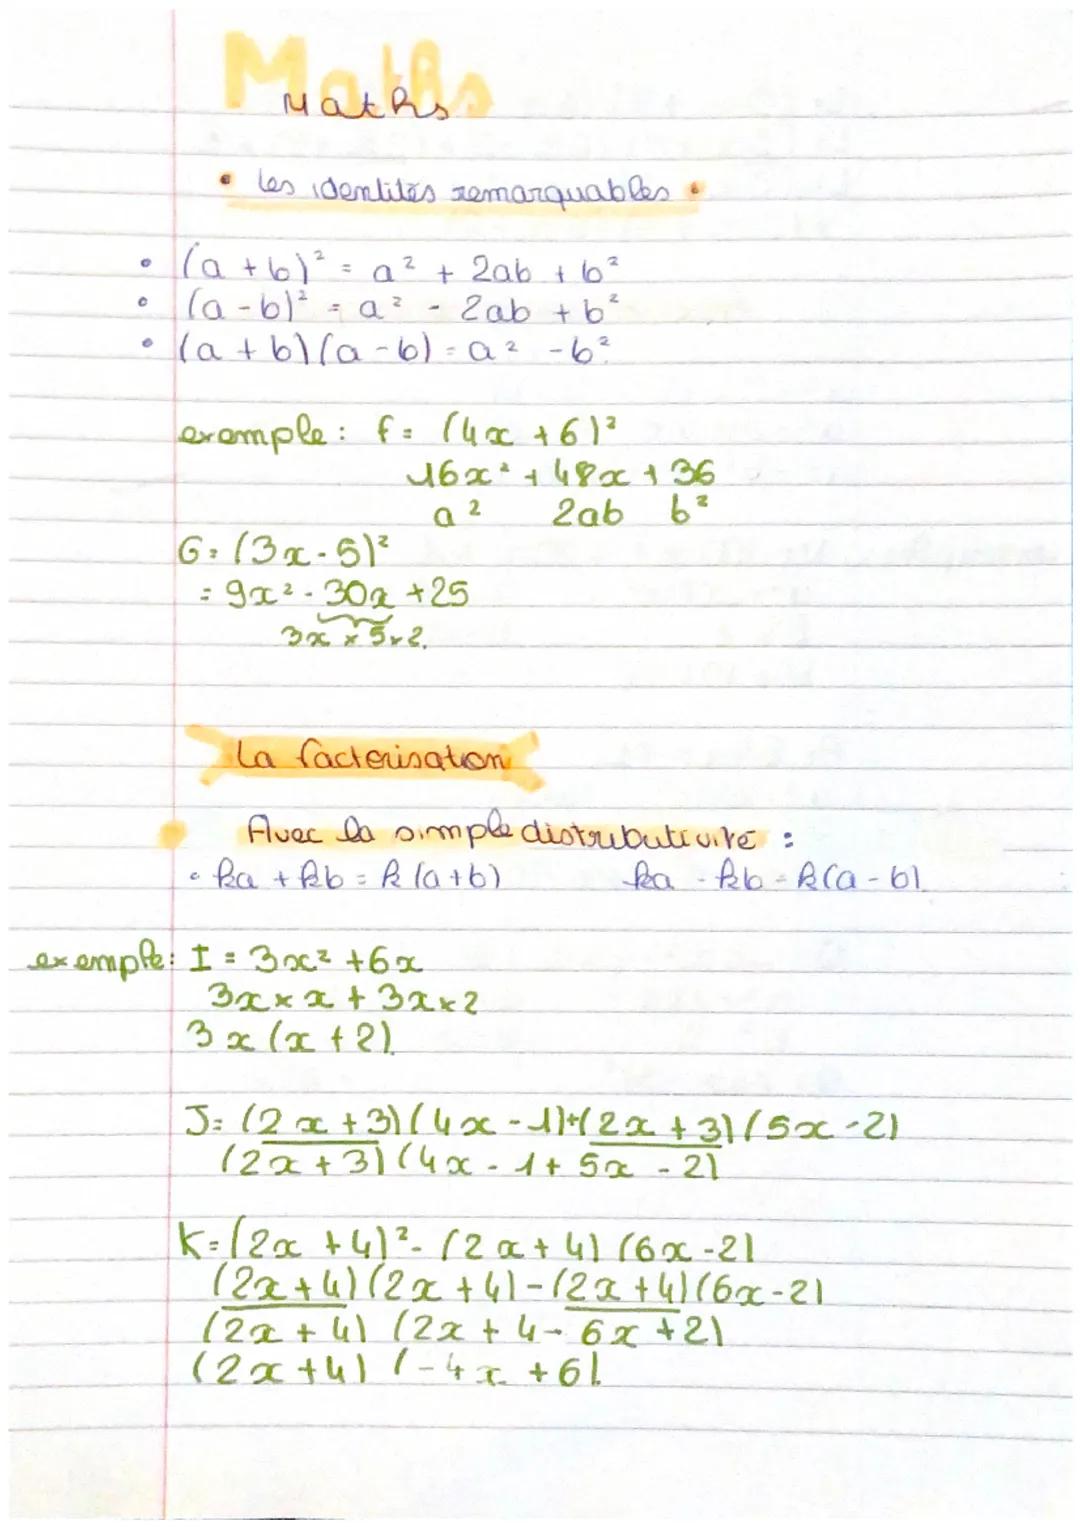 Maths
Maths
• les identités remarquables •
• (a + b)² = a² + 2ab + b²
• (a - b)² = a² - 2ab + b²
• (a + b)(a - b) = a² - b²
exemple : f = (4x + 6)²
16x² + 48x + 36
a² 2ab b²
G = (3x - 5)²
= 9x² - 30x + 25
3x × 5 × 2.
La factorisation
Avec la simple distributivité :
• ka + kb = k (a + b) ka - kb = k(a - b)
exemple : I = 3x² + 6x
3x × x + 3x × 2
3x (x + 2)
J = (2x + 3)(4x - 1)+(2x + 3)(5x - 2)
(2x + 3)(4x - 1 + 5x - 2)
K = (2x + 4)² - (2x + 4)(6x - 2)
(2x + 4)(2x + 4) - (2x + 4)(6x - 2)
(2x + 4) (2x + 4 - 6x + 2)
(2x + 4) (-4x + 6)